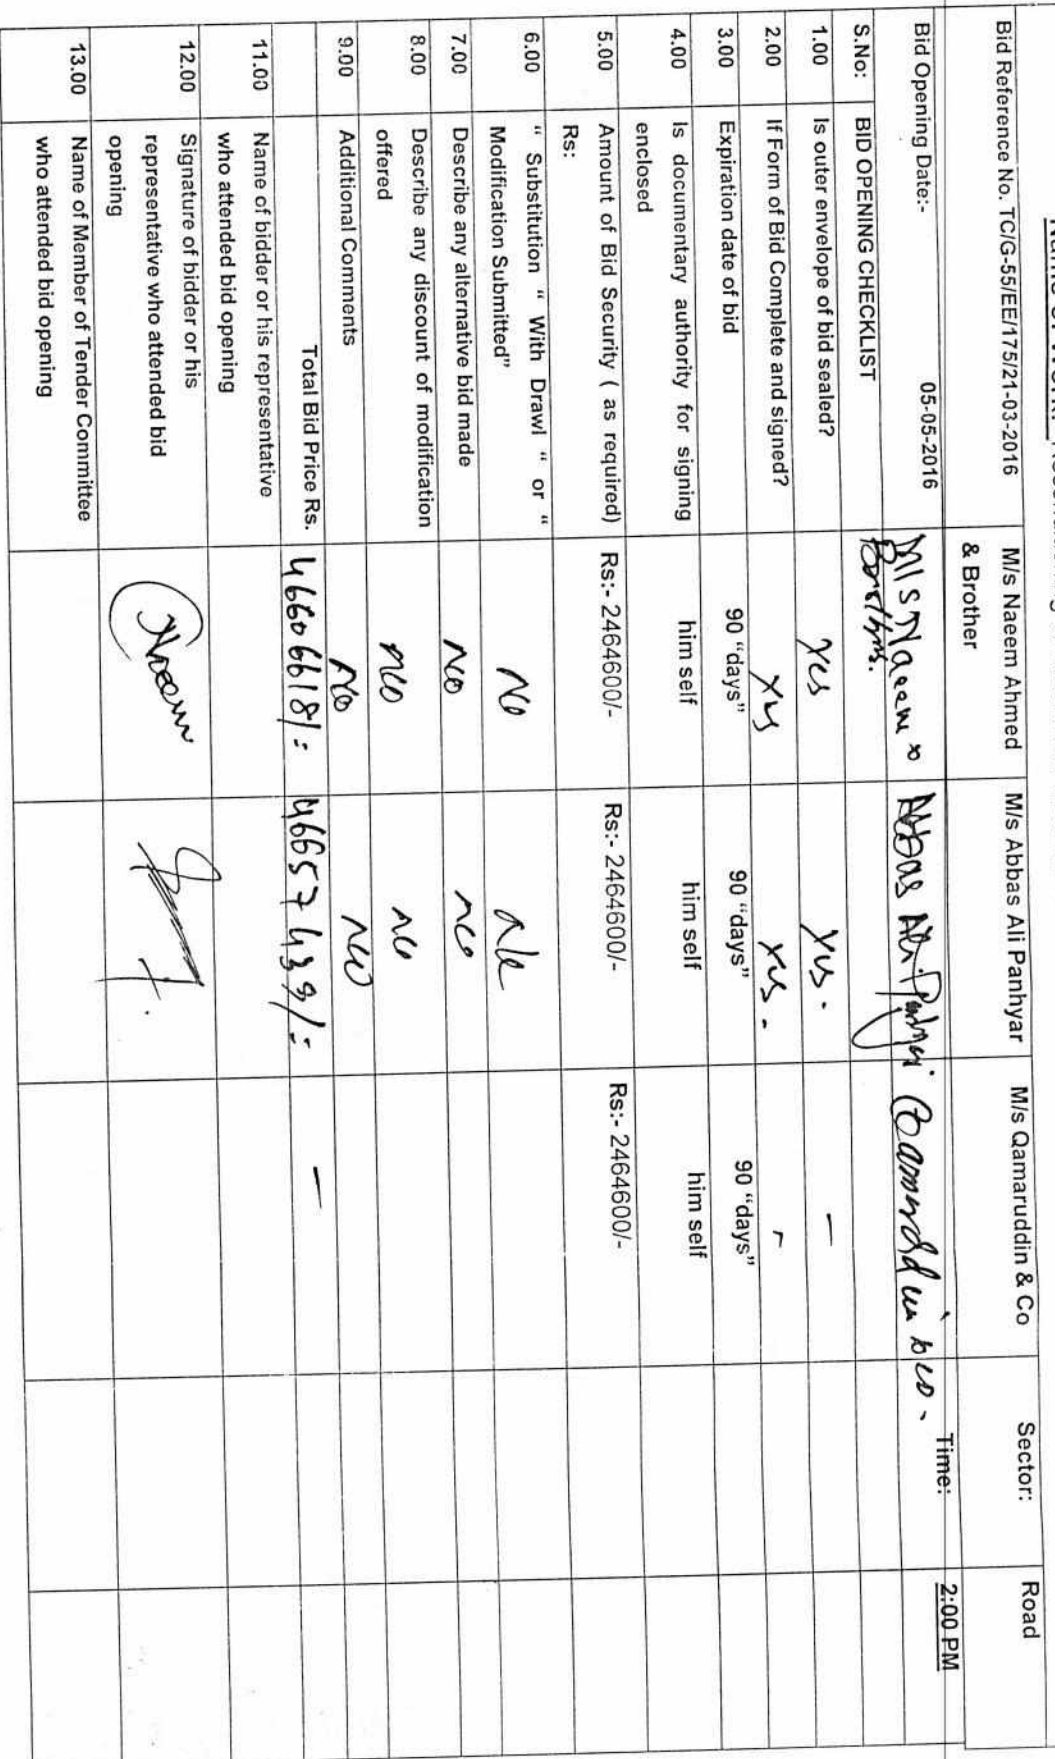 Bid Reference No. TC/G-55/EE/175/21-03-2016 M/s Naeem Ahmed & Brother M/s Abbas Ali Panhyar M/s Qamaruddin & Co Sector: Road
Bid Opening Date:- 05-05-2016 M/S Naeem & Brothers. Abbas Ali Time: 2:00 PM
S.No: BID OPENING CHECKLIST
1.00 Is outer envelope of bid sealed? yes yes. —
2.00 If Form of Bid Complete and signed? yes yes. -
3.00 Expiration date of bid 90 “days” 90 “days” 90 “days”
4.00 Is documentary authority for signing enclosed him self him self him self
5.00 Amount of Bid Security ( as required) Rs: Rs:- 2464600/- Rs:- 2464600/- Rs:- 2464600/-
6.00 “ Substitution “ With Drawl “ or “ Modification Submitted” No
7.00 Describe any alternative bid made No no
8.00 Describe any discount of modification offered no no
9.00 Additional Comments No no
Total Bid Price Rs. 46606618/= 46657439/= —
11.00 Name of bidder or his representative who attended bid opening
12.00 Signature of bidder or his representative who attended bid opening Naeem
13.00 Name of Member of Tender Committee who attended bid opening